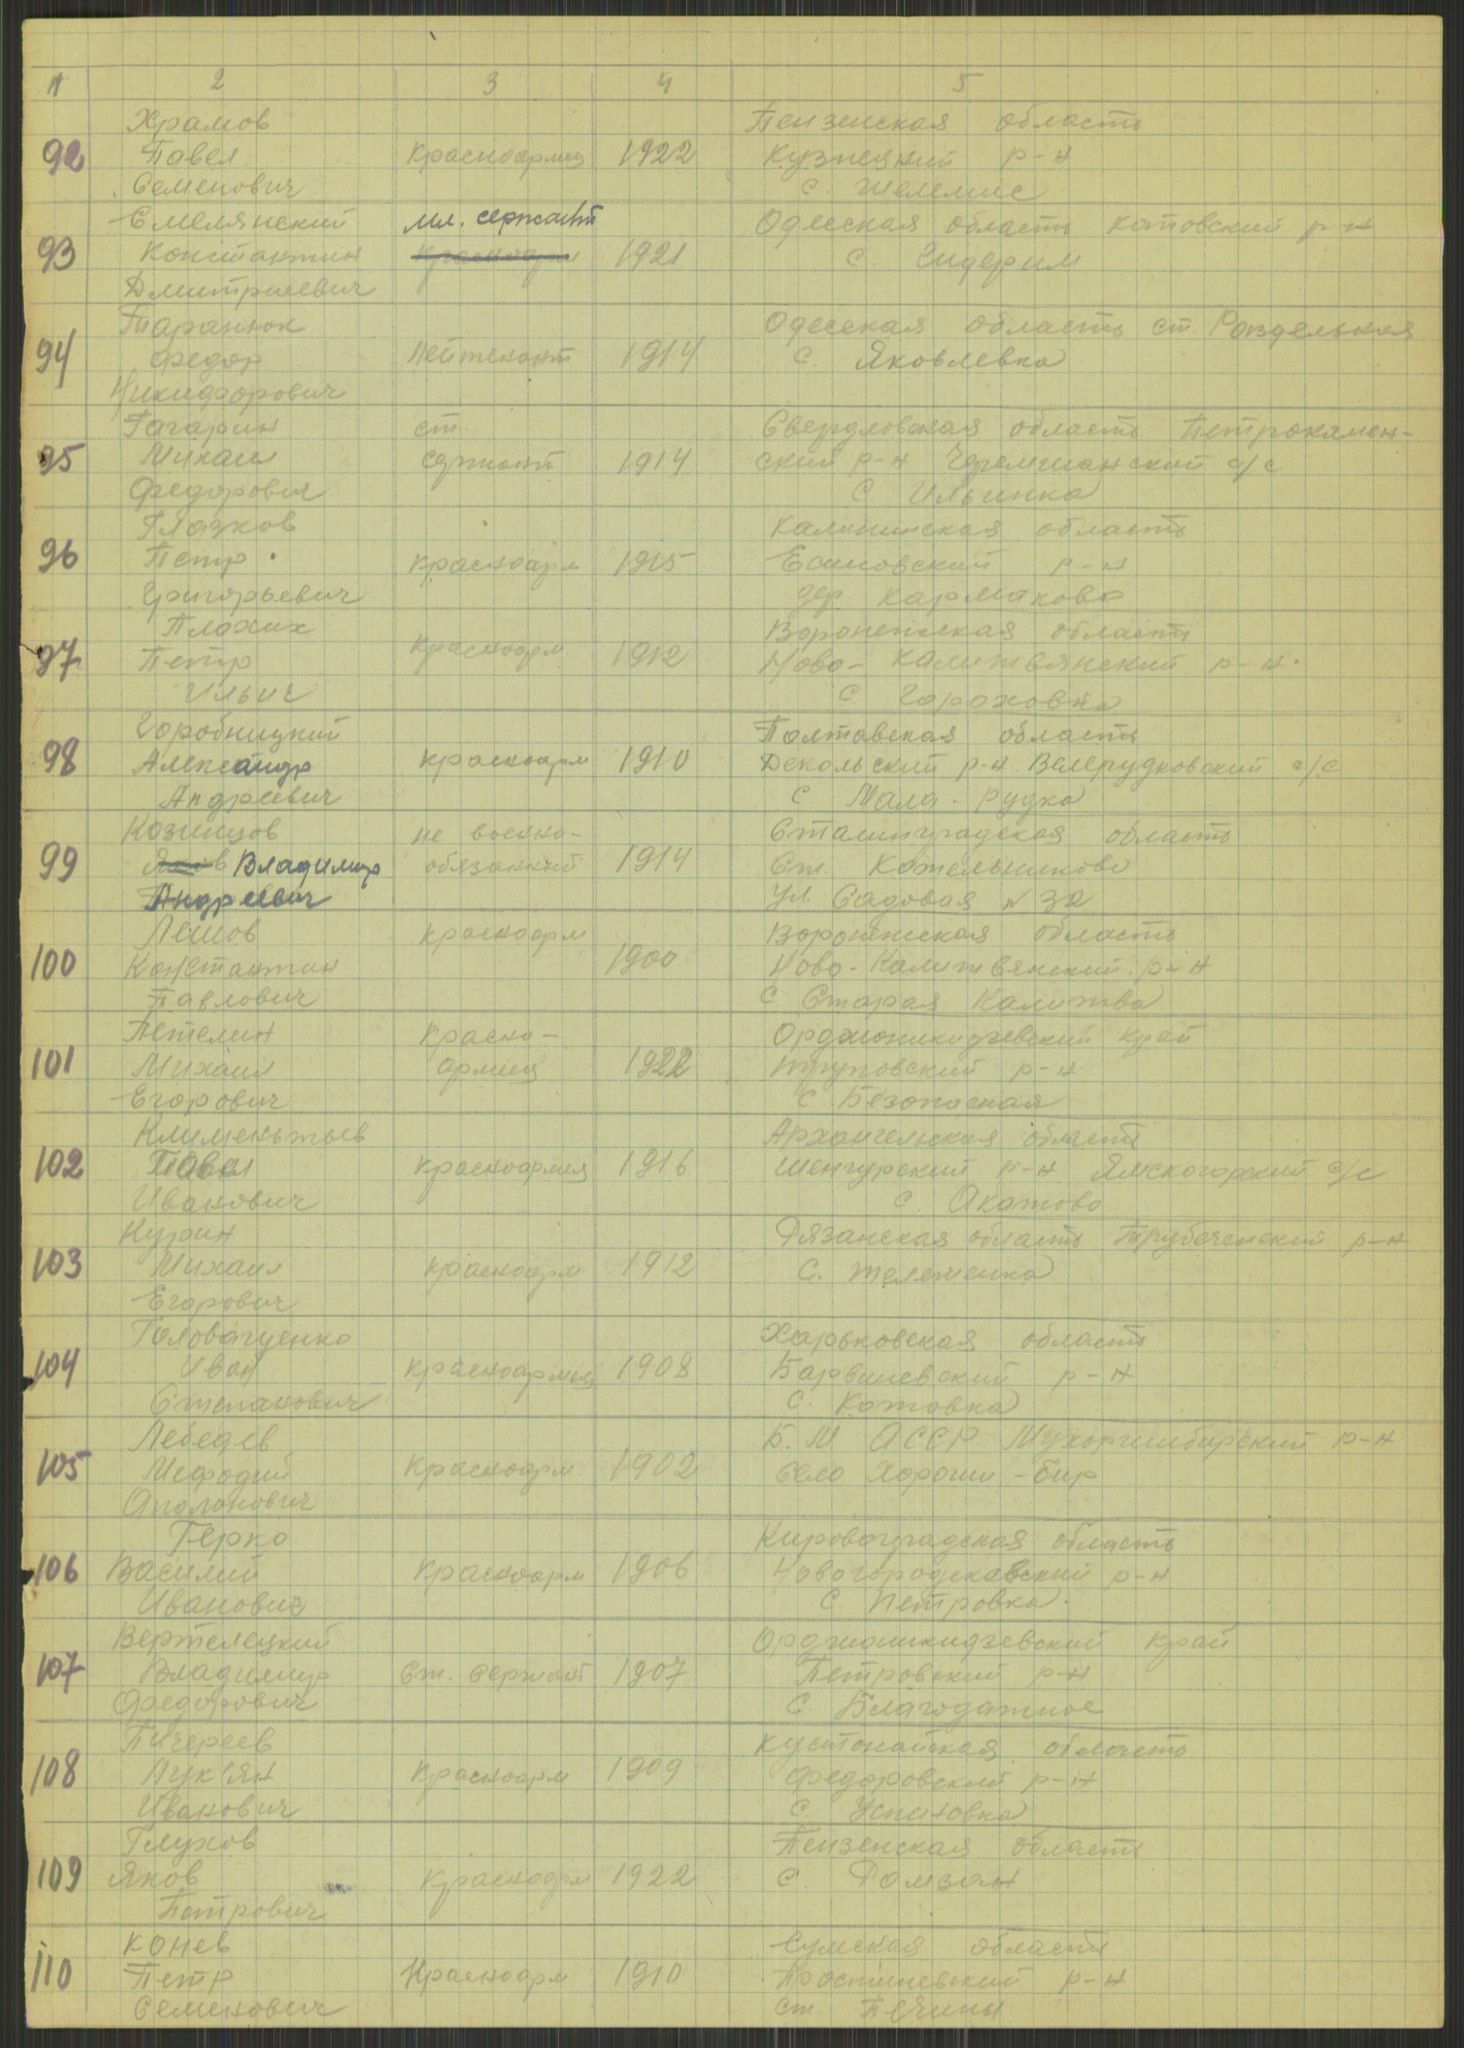 1 2 3 4 5
Храмов Пензенская область
92 Павел Красноармеец 1922 Кузнецкий р-н
Семенович с. Шелемис
Смелянский мл. сержант Одесская область Котовский р-н
93 Константин 1921 с. Гидерим
Дмитриевич
Таранюк Одесская область ст. Раздельная
94 Федор Лейтенант 1914 с. Яковлевка
Никифорович
Гагарин ст. Свердловская область Петрокамен-
95 Михаил сержант 1914 ский р-н Черемшанский с/с
Федорович с Ильинка
Глазков Калининская область
96 Петр Красноарм 1915 Есиновский р-н
Григорьевич дер. Кармаково
Плохих Воронежская область
97 Петр Красноарм 1912 Ново-Калитвянский р-н.
Ильич с. Гороховка
Горобницкий Полтавская область
98 Александр Красноарм 1910 Декольский р-н Велерудковский с/с
Андреевич с. Мала-Рудка
Козинцов не военно- Сталинградская область
99 Яков Владимир обязанный 1914 Ст. Котельниково
Андреевич Ул. Садовая № 32
Лешов Красноарм Воронежская область
100 Константин 1900 Ново-Калитвянский р-н
Павлович с Старая Калитва
Петелин Красно- Орджоникидзевский край
101 Михаил армеец 1922 Труновский р-н
Егорович с. Безопасная
Климентьев Архангельская область
102 Павел Красноармеец 1916 Шенгурский р-н Ямскогорский с/с
Иванович с. Акатово
Курин Рязанская область Трубеченский р-н
103 Михаил Красноарм 1912 с. Желеченка
Егорович
Головащенко Харьковская область
104 Иван Красноармеец 1908 Барвинсвский р-н
Степанович с. Котовка
Лебедев Б. М. АССР Мухоршибирский р-н
105 Мефодий Красноарм 1902 село Хорош-бир
Аполонович
Герко Кировоградская область
106 Василий Красноарм 1906 Новогородкавский р-н
Иванович с Петровка.
Вертелецкий Орджоникидзевский край
107 Владимир Ст. сержант 1907 Петровский р-н
Федорович с. Благодатное
Пичереев Кустонайская область
108 Лукьян Красноарм 1909 Федоровский р-н
Иванович с. Успеновка
Глухов Пензенская область
109 Яков Красноарм 1922 с. Рамзан
Петрович
Конев Сумская область
110 Петр Красноарм 1910 р-н
Семенович ст. Печины